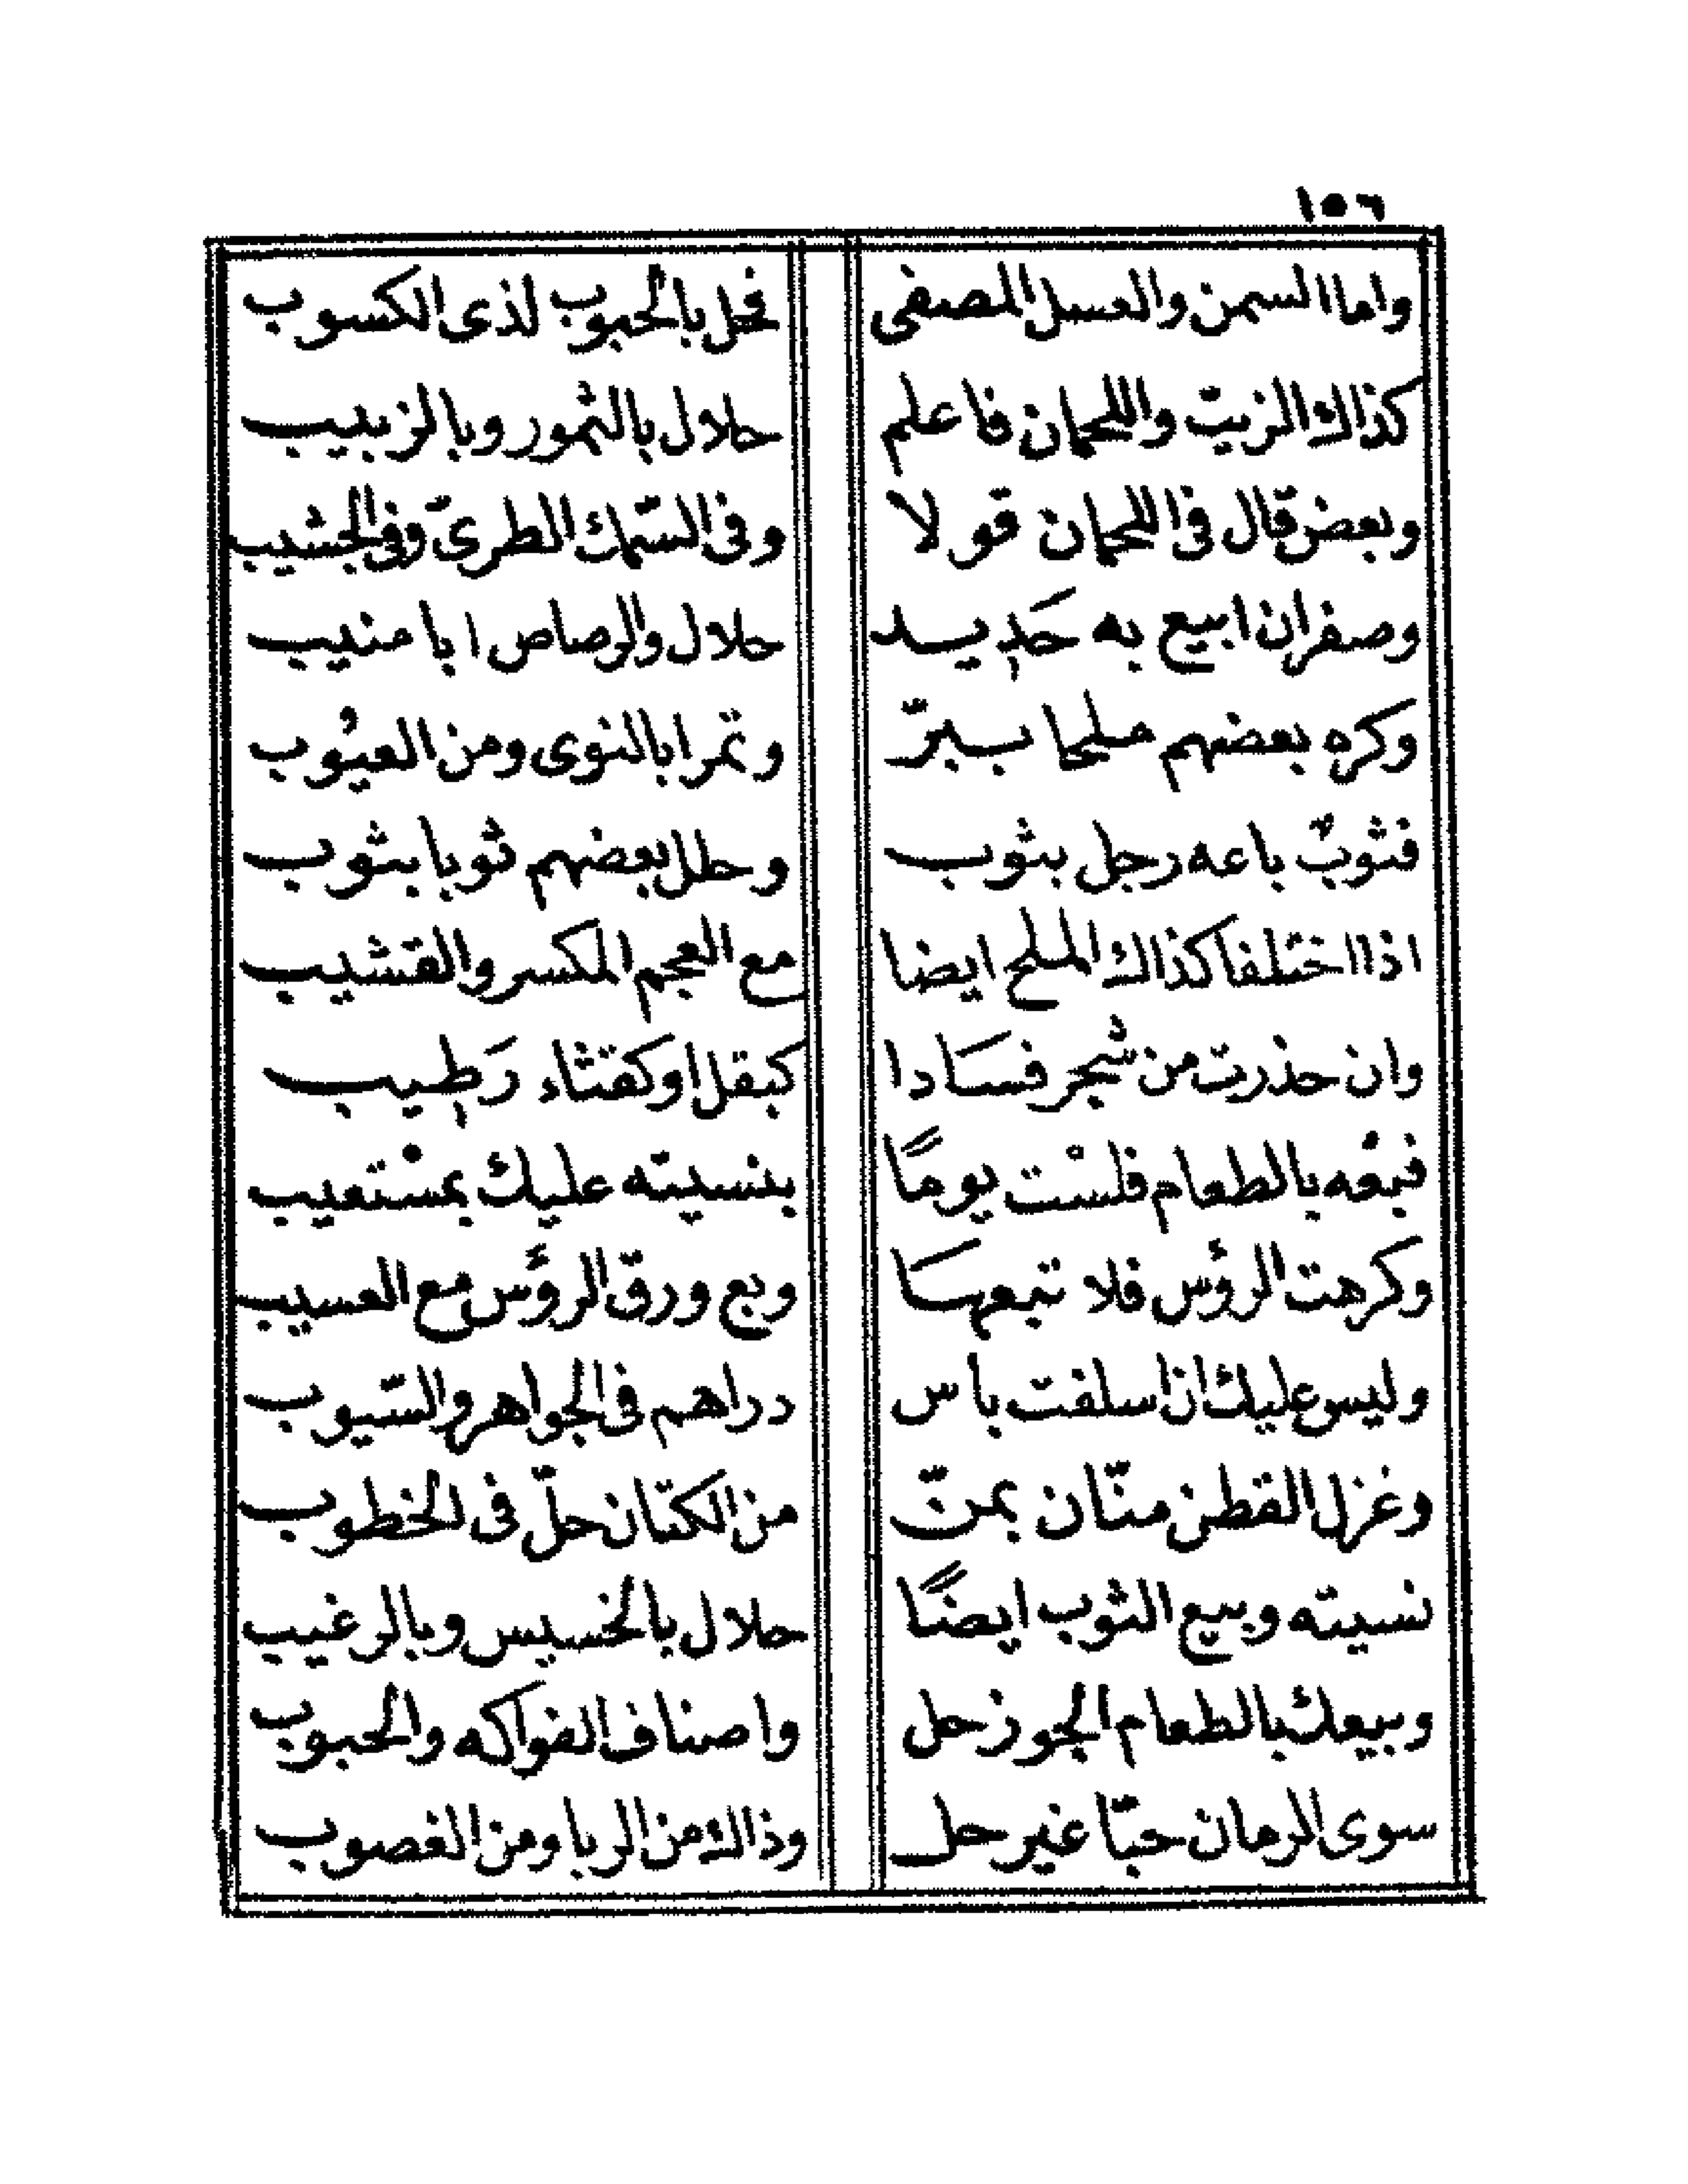 ١٥٦
واما السمن والعسل المصفى فحل بالحبوب لذى الكسوب
كذاك الزيت واللحمان فاعلم حلال بالتمور وبالزبيب
وبعض قال فى اللحمان قولا وفى السّمك الطرىّ وفى الجشيب
وصفر ان ابيع به حَدِيد حلال والرصاص ابا منيب
وكره بعضهم ملحا ببرّ وتمرا بالنوى ومن العيُوب
فثوبٌ باعه رجل بثوب وحلل بعضهم ثوبا بثوب
اذا اختلفا كذاك الملح ايضا مع العجم المكسر والقشيب
وان حذرت من شجر فسَادا كبقل او كقثاء رَطِيب
فبعْه بالطعام فلسْت يومًا بنسيته عليك بمسْتعيب
وكرهت الرؤس فلا تبعهَا وبع ورق الرؤَس مع العسيب
وليس عليك ان اسلفت بأس دراهم فى الجواهر والسّيوب
وغزل القطن منّان بمنّ من الكتّان حلّ فى الخطوب
نسيته وبيع الثوب ايضًا حلال بالخسيس وبالرغيب
وبيعك بالطعام الجوز حل واصناف الفواكه والحبوب
سوى الرمان حبّا غير حل وذاك من الربا ومن الغصوب